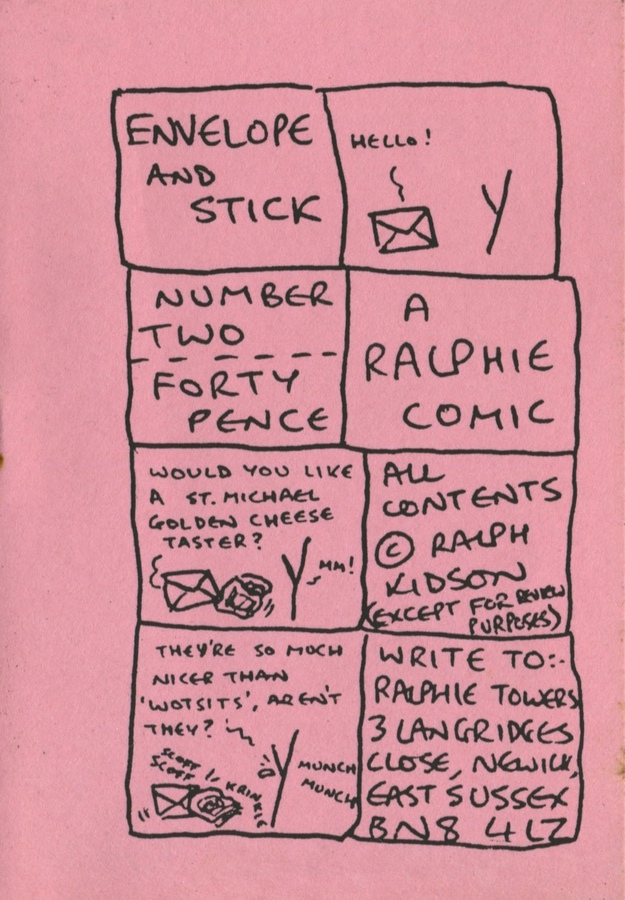 ENVELOPE
AND
STICK
HELLO!
NUMBER
TWO
FORTY
PENCE
A
RALPHIE
COMIC
WOULD YOU LIKE
A ST. MICHAEL
GOLDEN CHEESE
TASTER?
MM!
ALL
CONTENTS
© RALPH
KIDSON
(EXCEPT FOR REVIEW
PURPOSES)
THEY'RE SO MUCH
NICER THAN
'WOTSITS', AREN'T
THEY?
SCOFF
SCOFF
KRINKLE
MUNCH
MUNCH
WRITE TO:-
RALPHIE TOWERS
3 LANGRIDGES
CLOSE, NEWICK,
EAST SUSSEX
BN8 4LZ